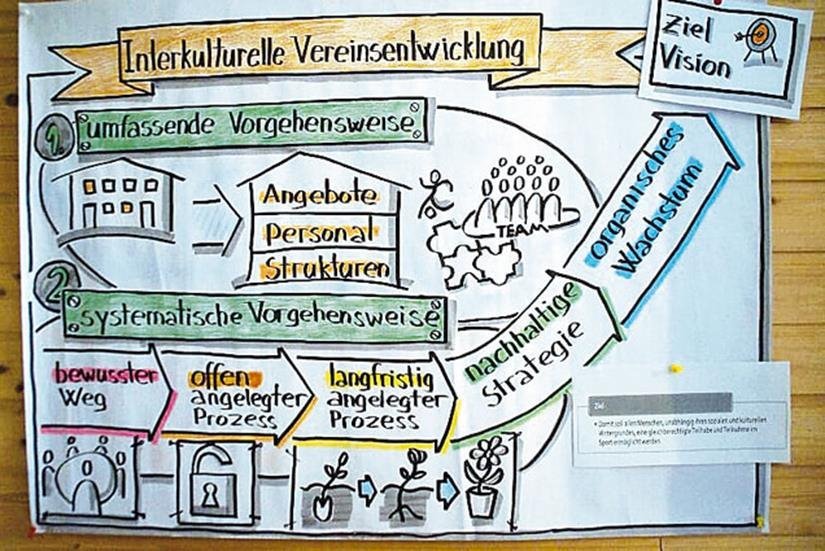 Interkulturelle Vereinsentwicklung
Ziel
Vision
1. umfassende Vorgehensweise
Angebote
Personal
Strukturen
TEAM
2 systematische Vorgehensweise
bewusster
Weg
offen
angelegter
Prozess
langfristig
angelegter
Prozess
nachhaltige
Strategie
organisches
Wachstum
Ziel
• Damit soll allen Menschen, unabhängig ihres sozialen und kulturellen
Hintergrundes, eine gleichberechtigte Teilhabe und Teilnahme im
Sport ermöglicht werden.